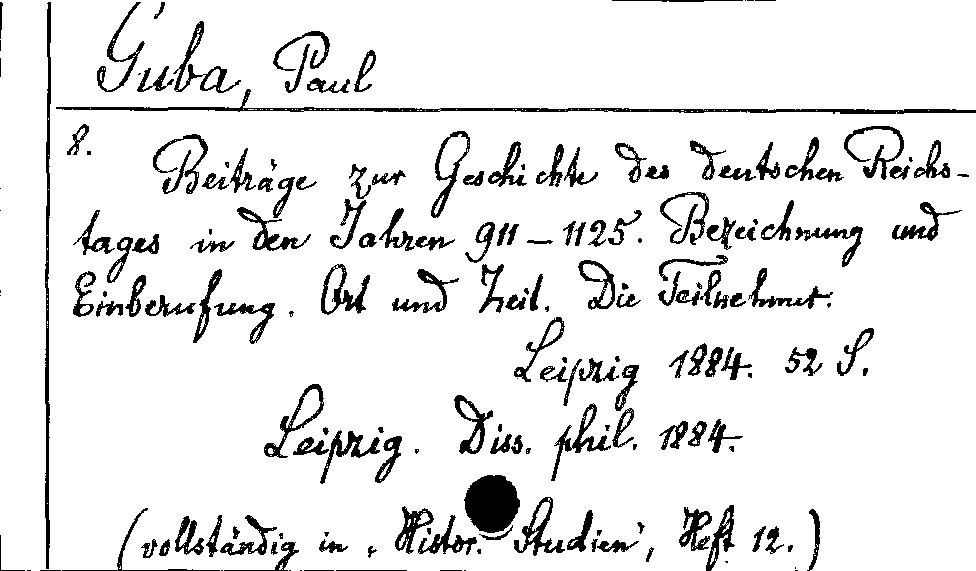 Guba, Paul
8.
Beiträge zur Geschichte des deutschen Reichs-
tages in den Jahren 911-1125. Bezeichnung und
Einberufung. Ort und Zeit. Die Teilnehmer.
Leipzig 1884. 52 S.
Leipzig. Diss. phil. 1884.
(vollständig in „Histor. Studien", Heft 12.)